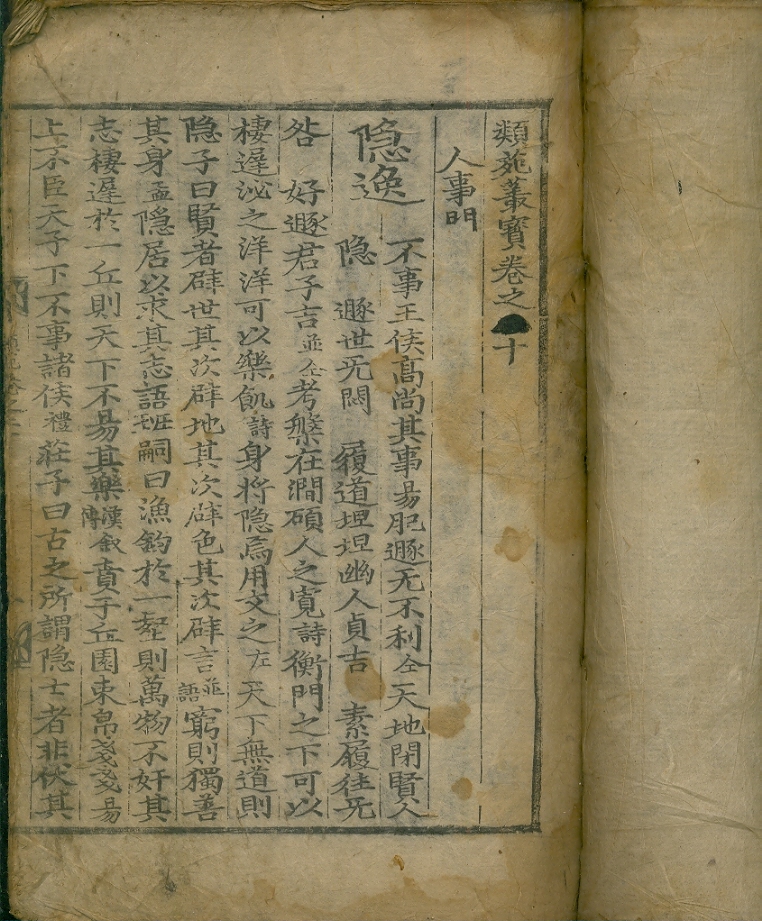 類苑叢寶卷之 十
人事門
隐逸 不事王侯髙尚其事易肥遯无不利仝天地閉賢人
隐 遯世无悶 履道坦坦幽人貞吉 素履往无
咎 好遯君子吉並仝考槃在澗碩人之寛詩衡門之下可以
棲遲泌之洋洋可以樂飢詩身將隐焉用文之左天下無道則
隐子曰賢者辟世其次辟地其次辟色其次辟言並語窮則獨善
其身孟隐居以求其志語班嗣曰漁釣於一壑則萬物不奸其
志棲遲於一丘則天下不易其樂漢叙傳賁于丘園束帛戔戔易
上不臣天子下不事諸侯禮莊子曰古之所謂隐士者非伏其